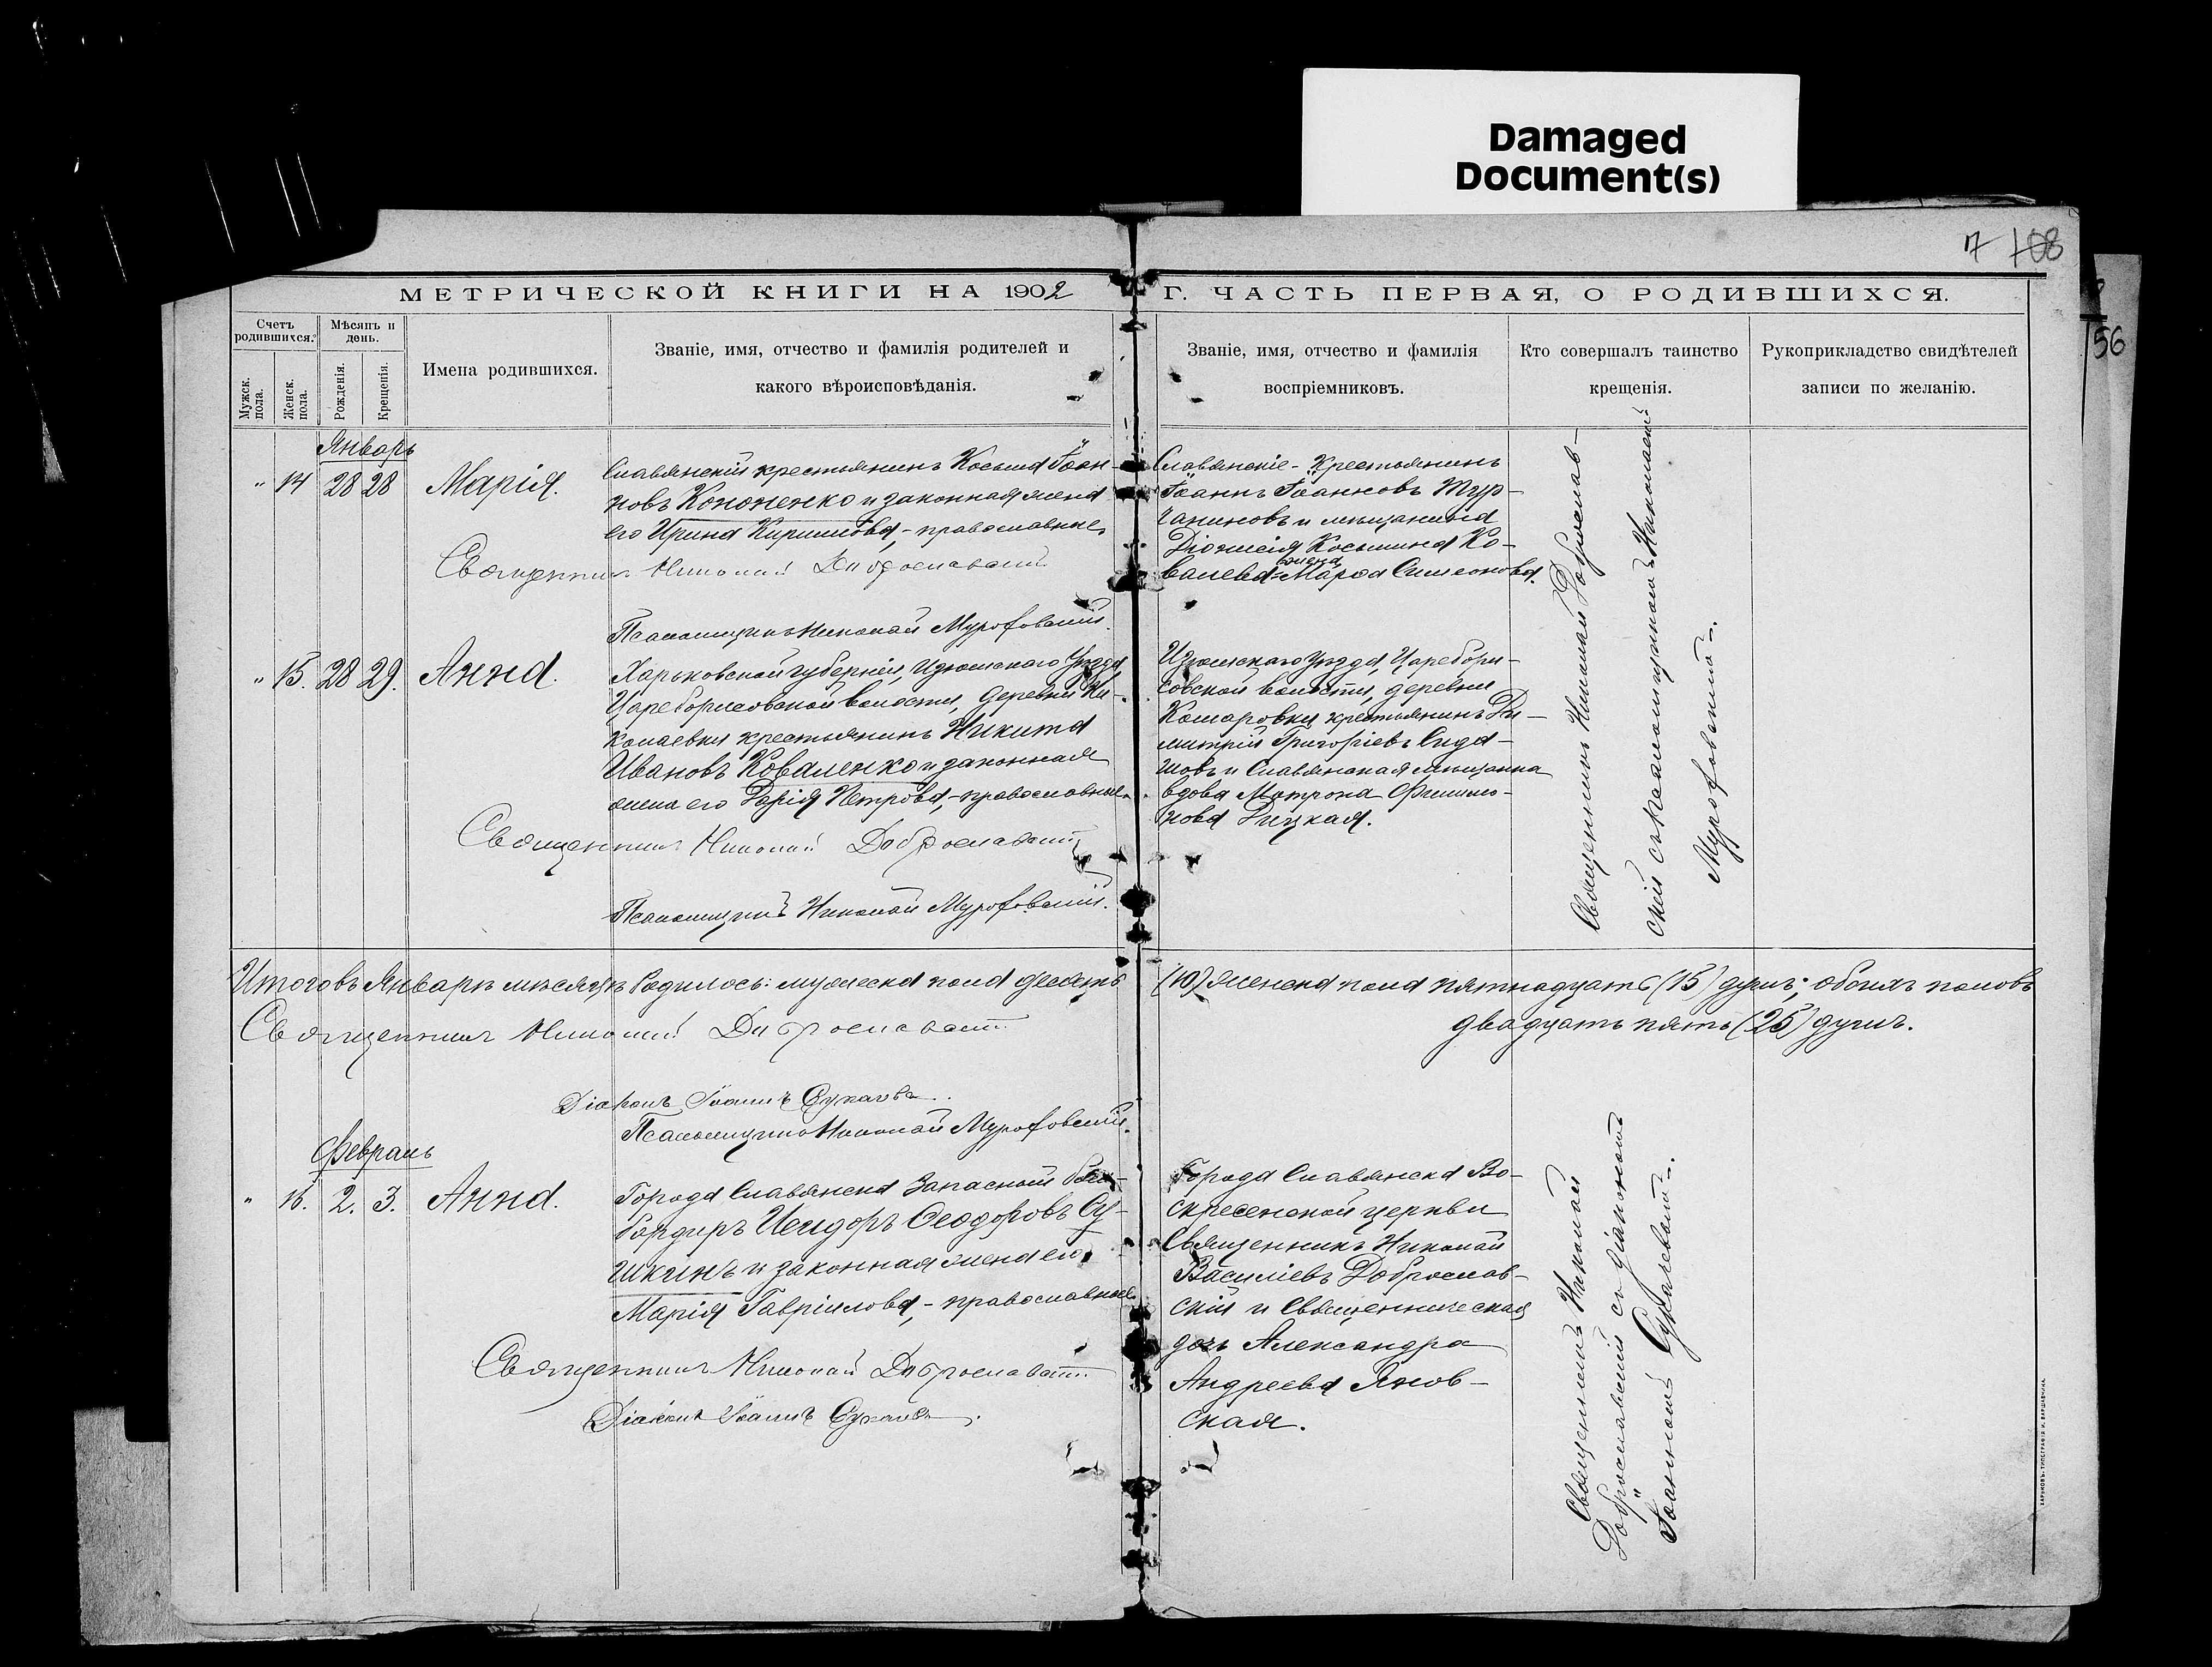 Damaged
Document(s)
7 108
56
МЕТРИЧЕСКОЙ КНИГИ НА 1902 Г. ЧАСТЬ ПЕРВАЯ, О РОДИВШИХСЯ.
Счетъ родившихся.
Мужск. пола.
Женск. пола.
Мѣсяцъ и день.
Рожденія.
Крещенія.
Имена родившихся.
Званіе, имя, отчество и фамилія родителей и
какого вѣроисповѣданія.
Званіе, имя, отчество и фамилія
воспріемниковъ.
Кто совершалъ таинство
крещенія.
Рукоприкладство свидѣтелей
записи по желанію.
Январь
" 14 28 28 Марія.
Славянскій крестьянинъ Косьма Іоан-
новъ Кононенко и законная жена
его Ирина Кириллова, - православные.
Священникъ Николай Доброславскій
Псаломщикъ Николай Мурофовскій.
Славянскіе - крестьянинъ
Іоаннъ Іоанновъ Тур-
чаниновъ и мѣщанина
Діонисія Косьмина Ко-
валева жена Марѳа Симеонова.
" 15. 28 29. Анна.
Харьковской губерніи, Изюмскаго Уѣзда
Цареборисовской волости, деревни Ни-
колаевки крестьянинъ Никита
Ивановъ Коваленко и законная
жена его Дарія Петрова, - православные.
Священникъ Николай Доброславскій
Псаломщикъ Николай Мурофовскій.
Изюмскаго уѣзда, Царебори-
совской волости, деревни
Комаровки крестьянинъ Ди-
митрій Григоріевъ
и Славянская мѣщанка
вдова Матрона Филимо-
нова
Священникъ Николай Доброслав-
скій съ псаломщикомъ Николаемъ
Мурофовскимъ.
Итого въ Январѣ мѣсяцѣ родилось: мужеска пола десять (10) женска пола пятнадцать (15) душъ; обоихъ половъ
двадцать пять (25) душъ.
Священникъ Николай Доброславскій
Діаконъ Іоаннъ
Псаломщикъ Николай Мурофовскій.
Февраль
" 16. 2. 3. Анна.
Города Славянска Запасной бом-
бардиръ Исидоръ Ѳеодоровъ Су-
шкинъ и законная жена его
Марія Гавріилова, - православные.
Священникъ Николай Доброславскій
Діаконъ Іоаннъ
Города Славянска Во-
скресенской церкви
Священникъ Николай
Василіевъ Доброслав-
скій и Священническая
дочь Александра
Андреева Янов-
ская.
Священникъ Николай
Доброславскій съ діакономъ
Іоанномъ